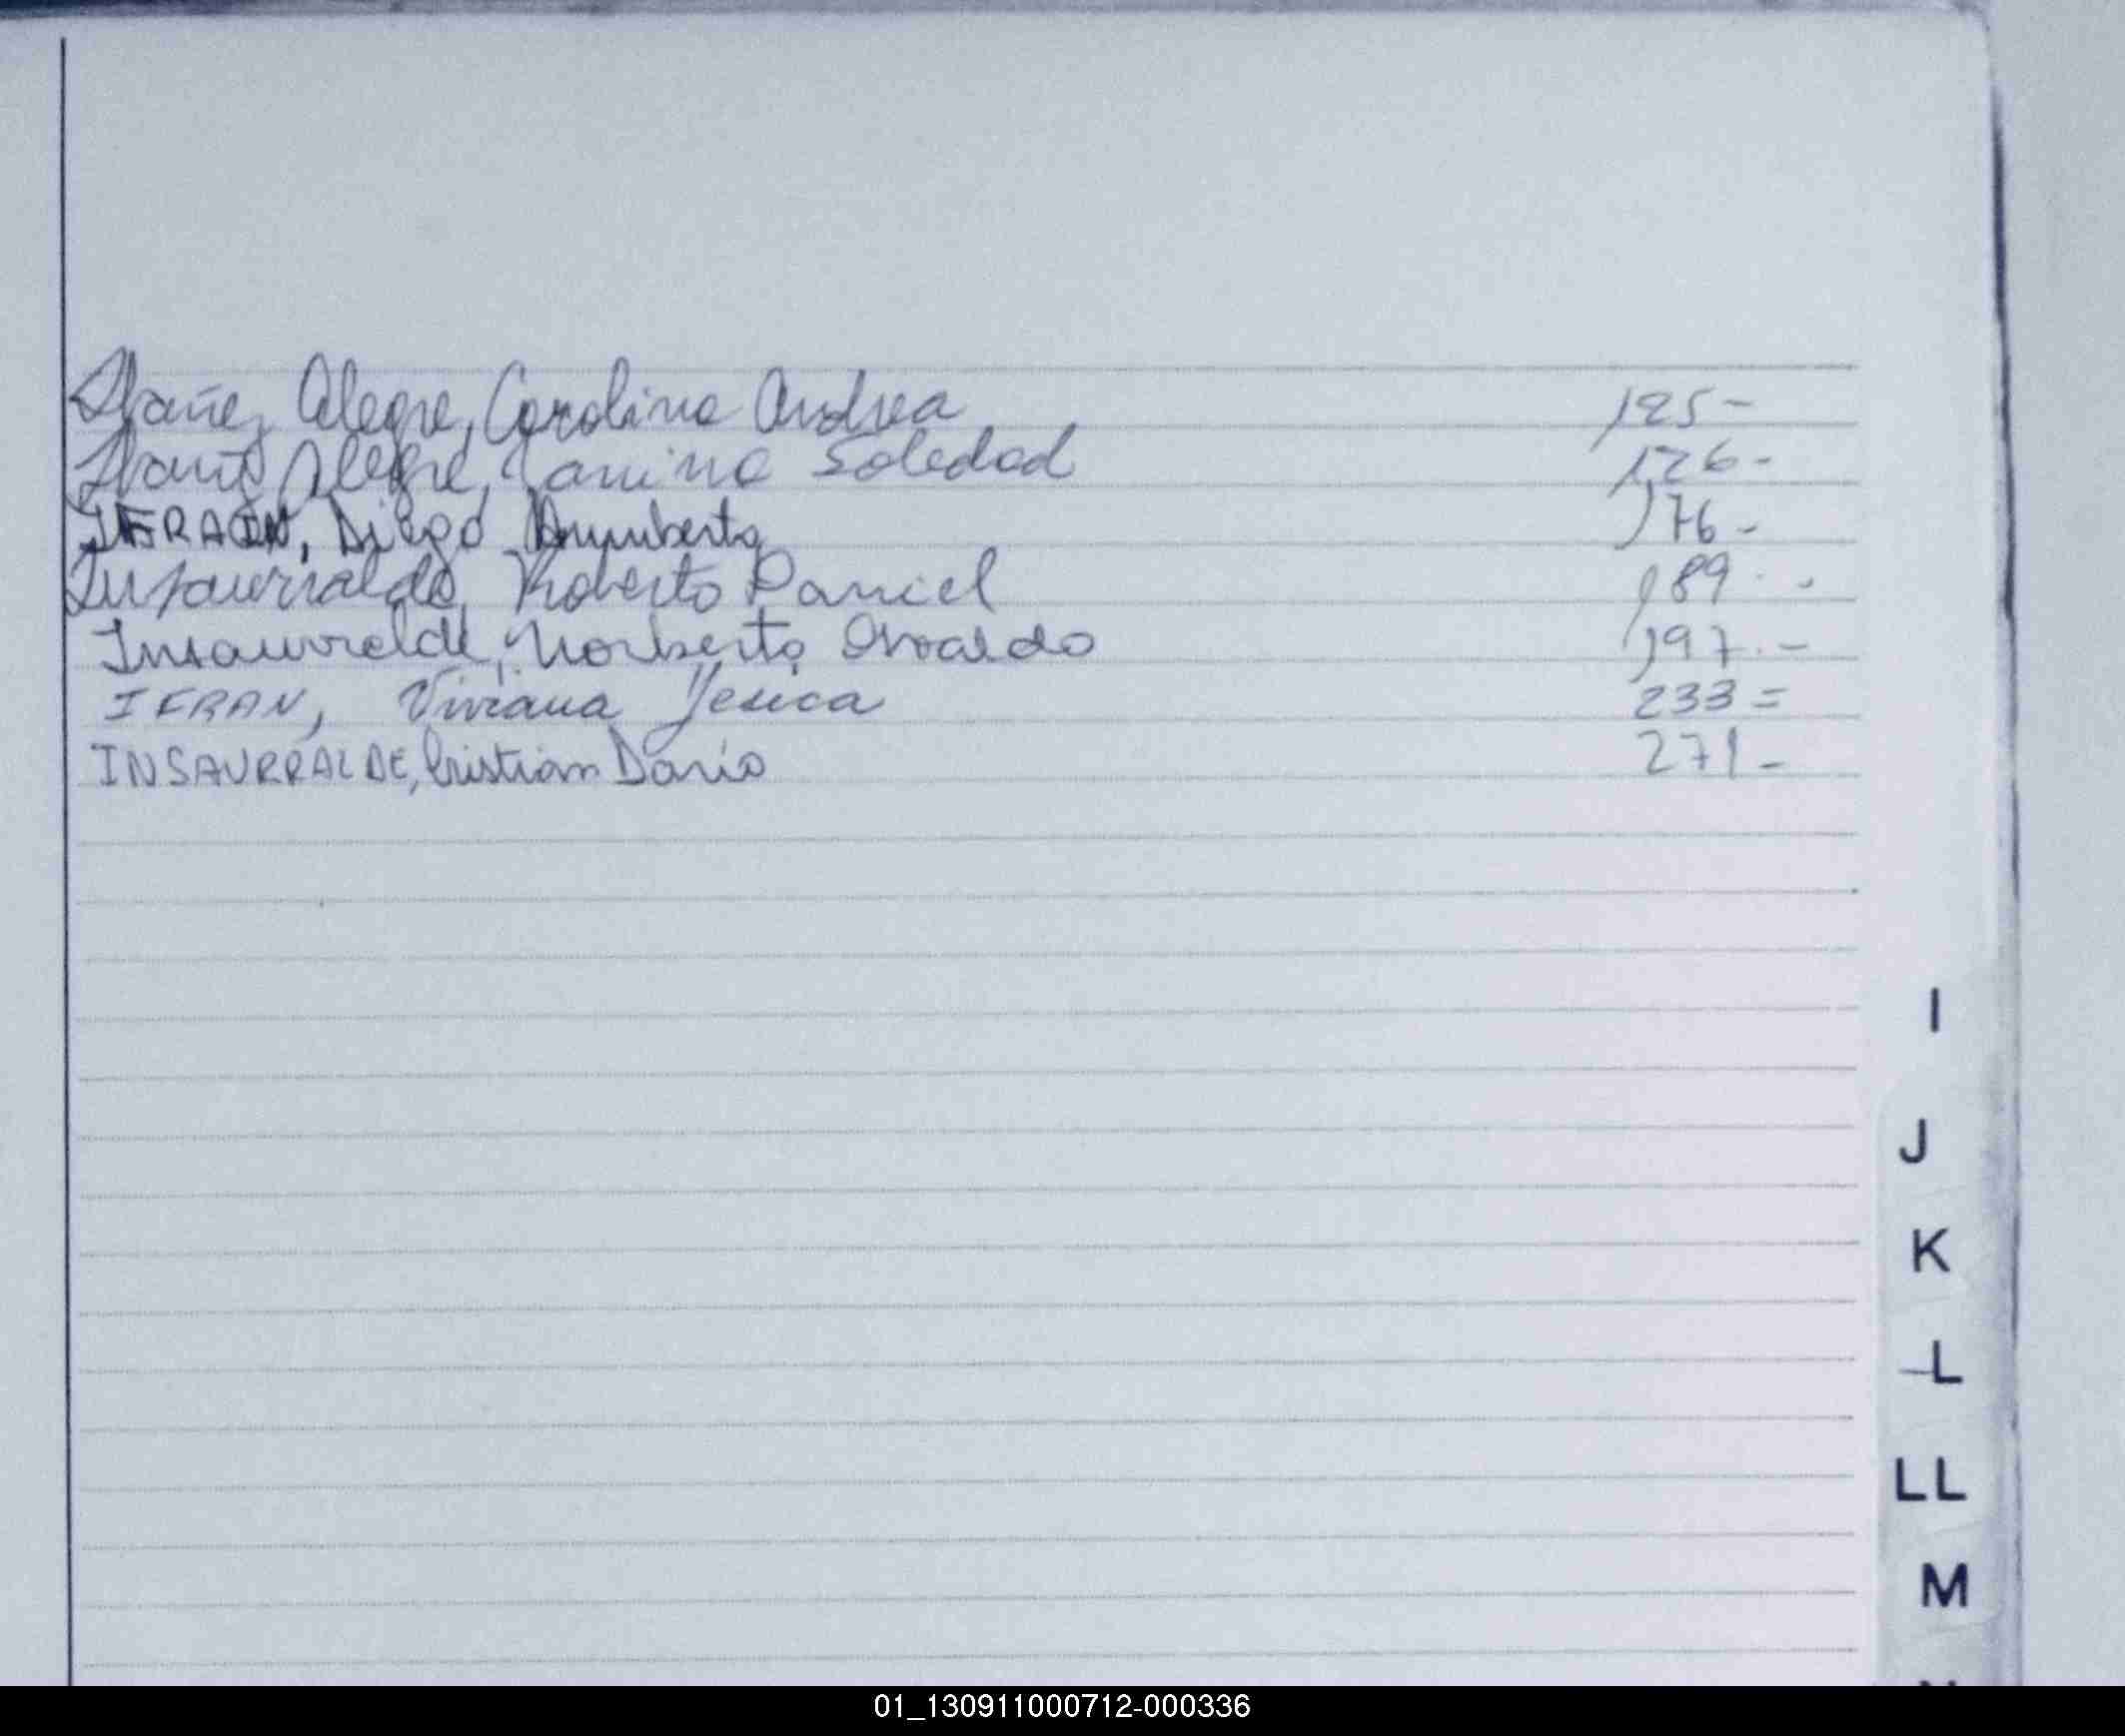 Ibañez Alegre, Carolina Andrea 125-
Ibañez Alegre, Yanina Soledad 126-
IFRAIN, Diego Humberto 176-
Insaurralde, Roberto Daniel 189.-
Insaurralde, Norberto Osvaldo 197.-
IFRAN, Viviana Yesica 233=
INSAURRALDE, Cristian Dario 271-
I
J
K
L
LL
M
01_130911000712-000336